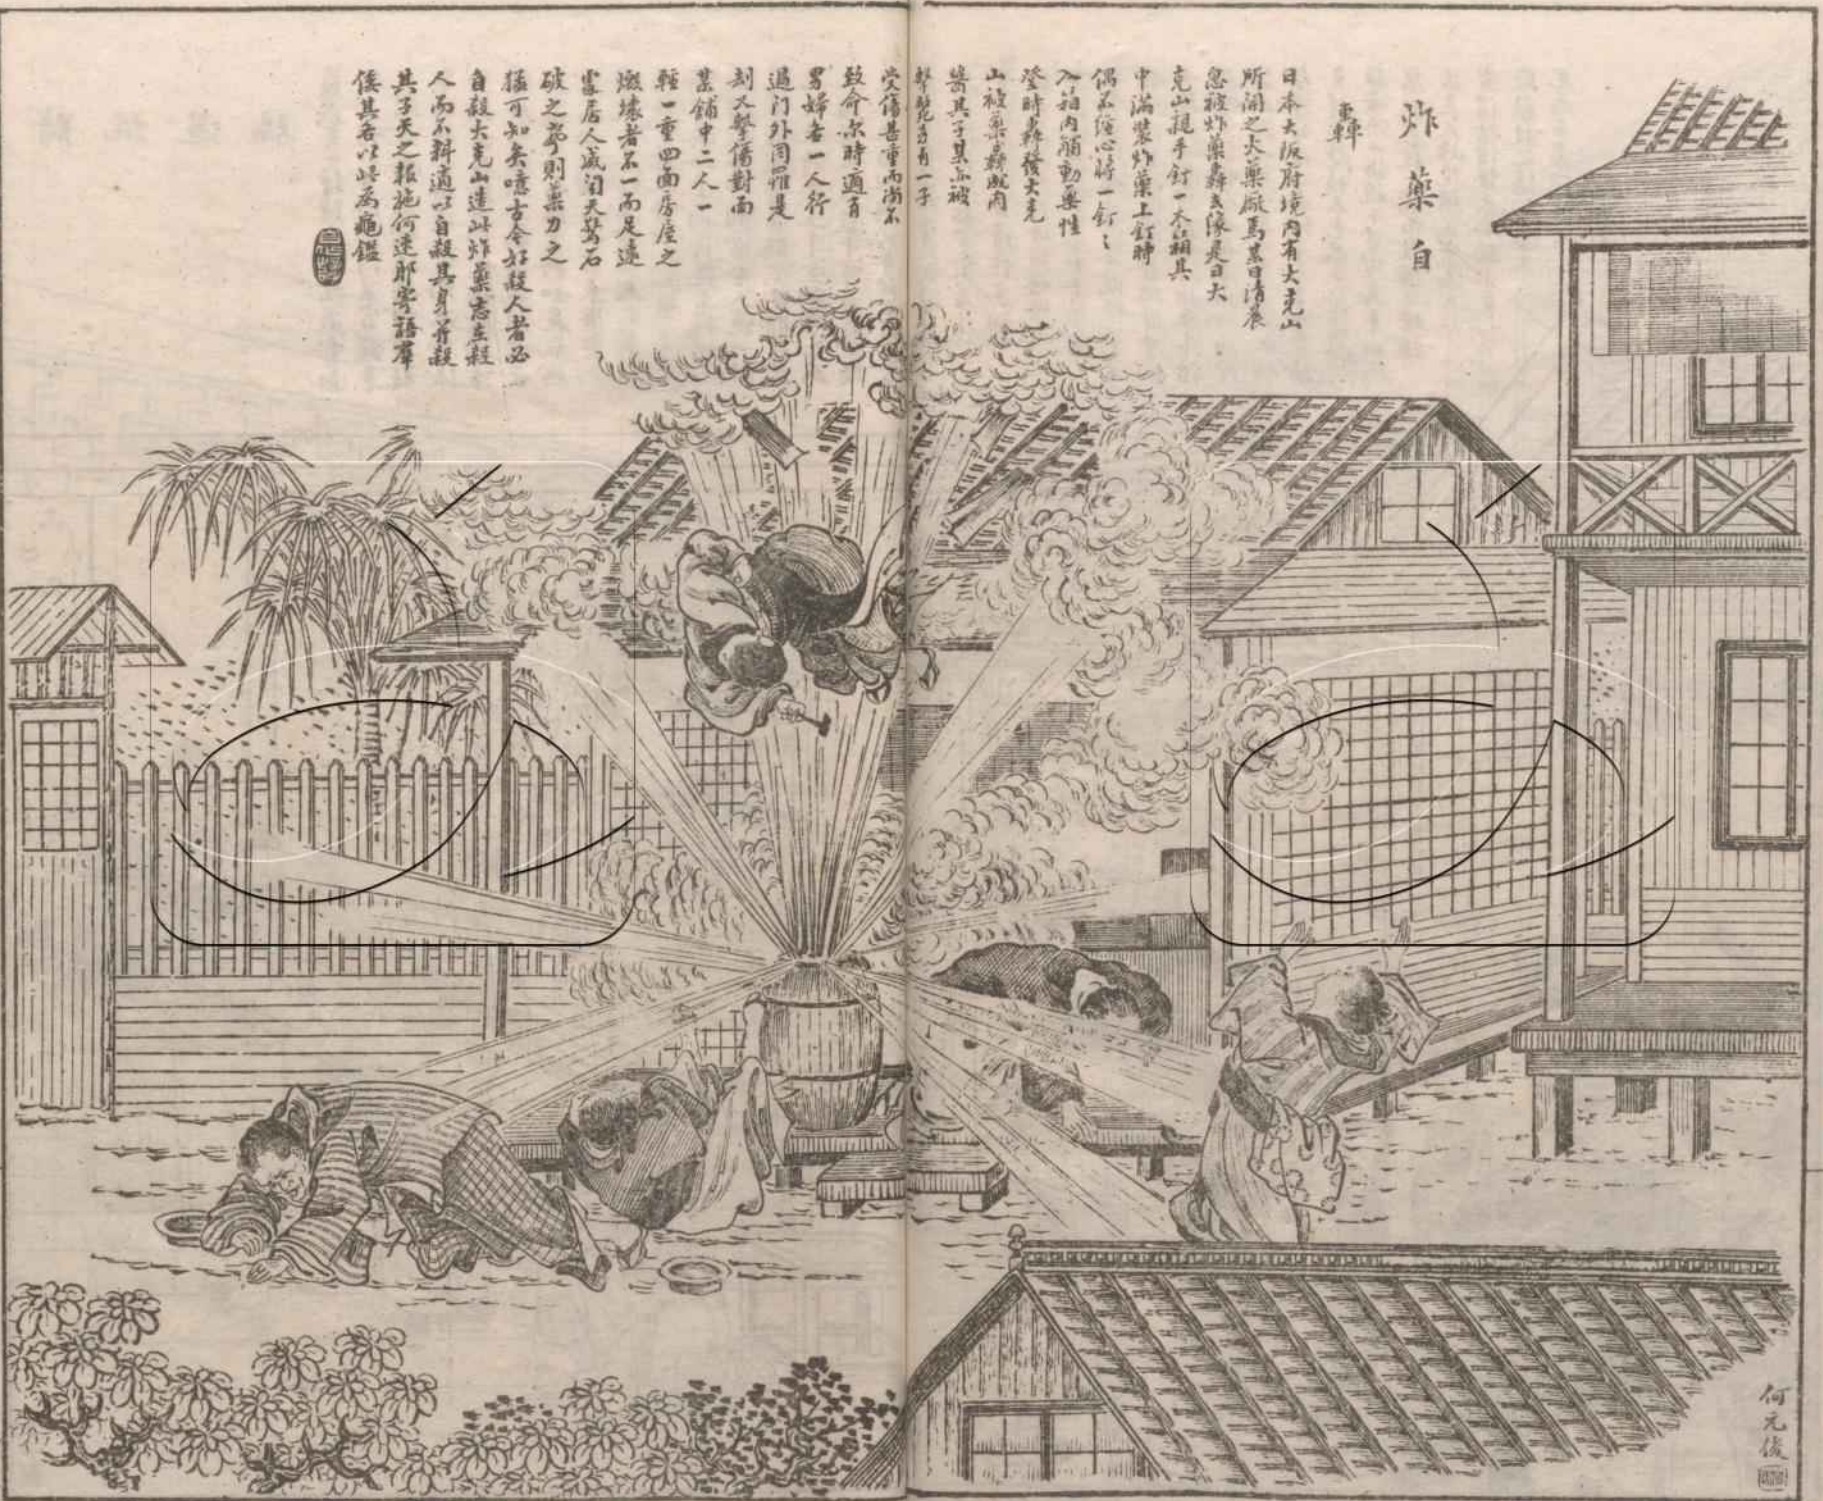 炸藥自
轟
日本大阪府境內有大克山
所開之火藥廠焉某日清晨
忽被炸藥轟去緣是日大
克山親手釘一木箱其
中滿裝炸藥上釘時
偶不經心將一釘釘
入箱內觸動藥性
登時轟發大克
山被藥轟成肉
醬其子某亦被
擊斃另有一子
受傷甚重而尚不
致命尔時適有
男婦各一人行
過门外同罹是
刦又擊傷對面
某鋪中二人一
輕一重四面房屋之
燬壞者不一而足遠
處居人咸聞天驚石
破之聲則藥力之
猛可知矣噫古今好殺人者必
自殺大克山造此炸藥志在殺
人而不料適以自殺其身并殺
其子天之報施何速耶寄語羣
倭其各以此為龜鑑
何元俊